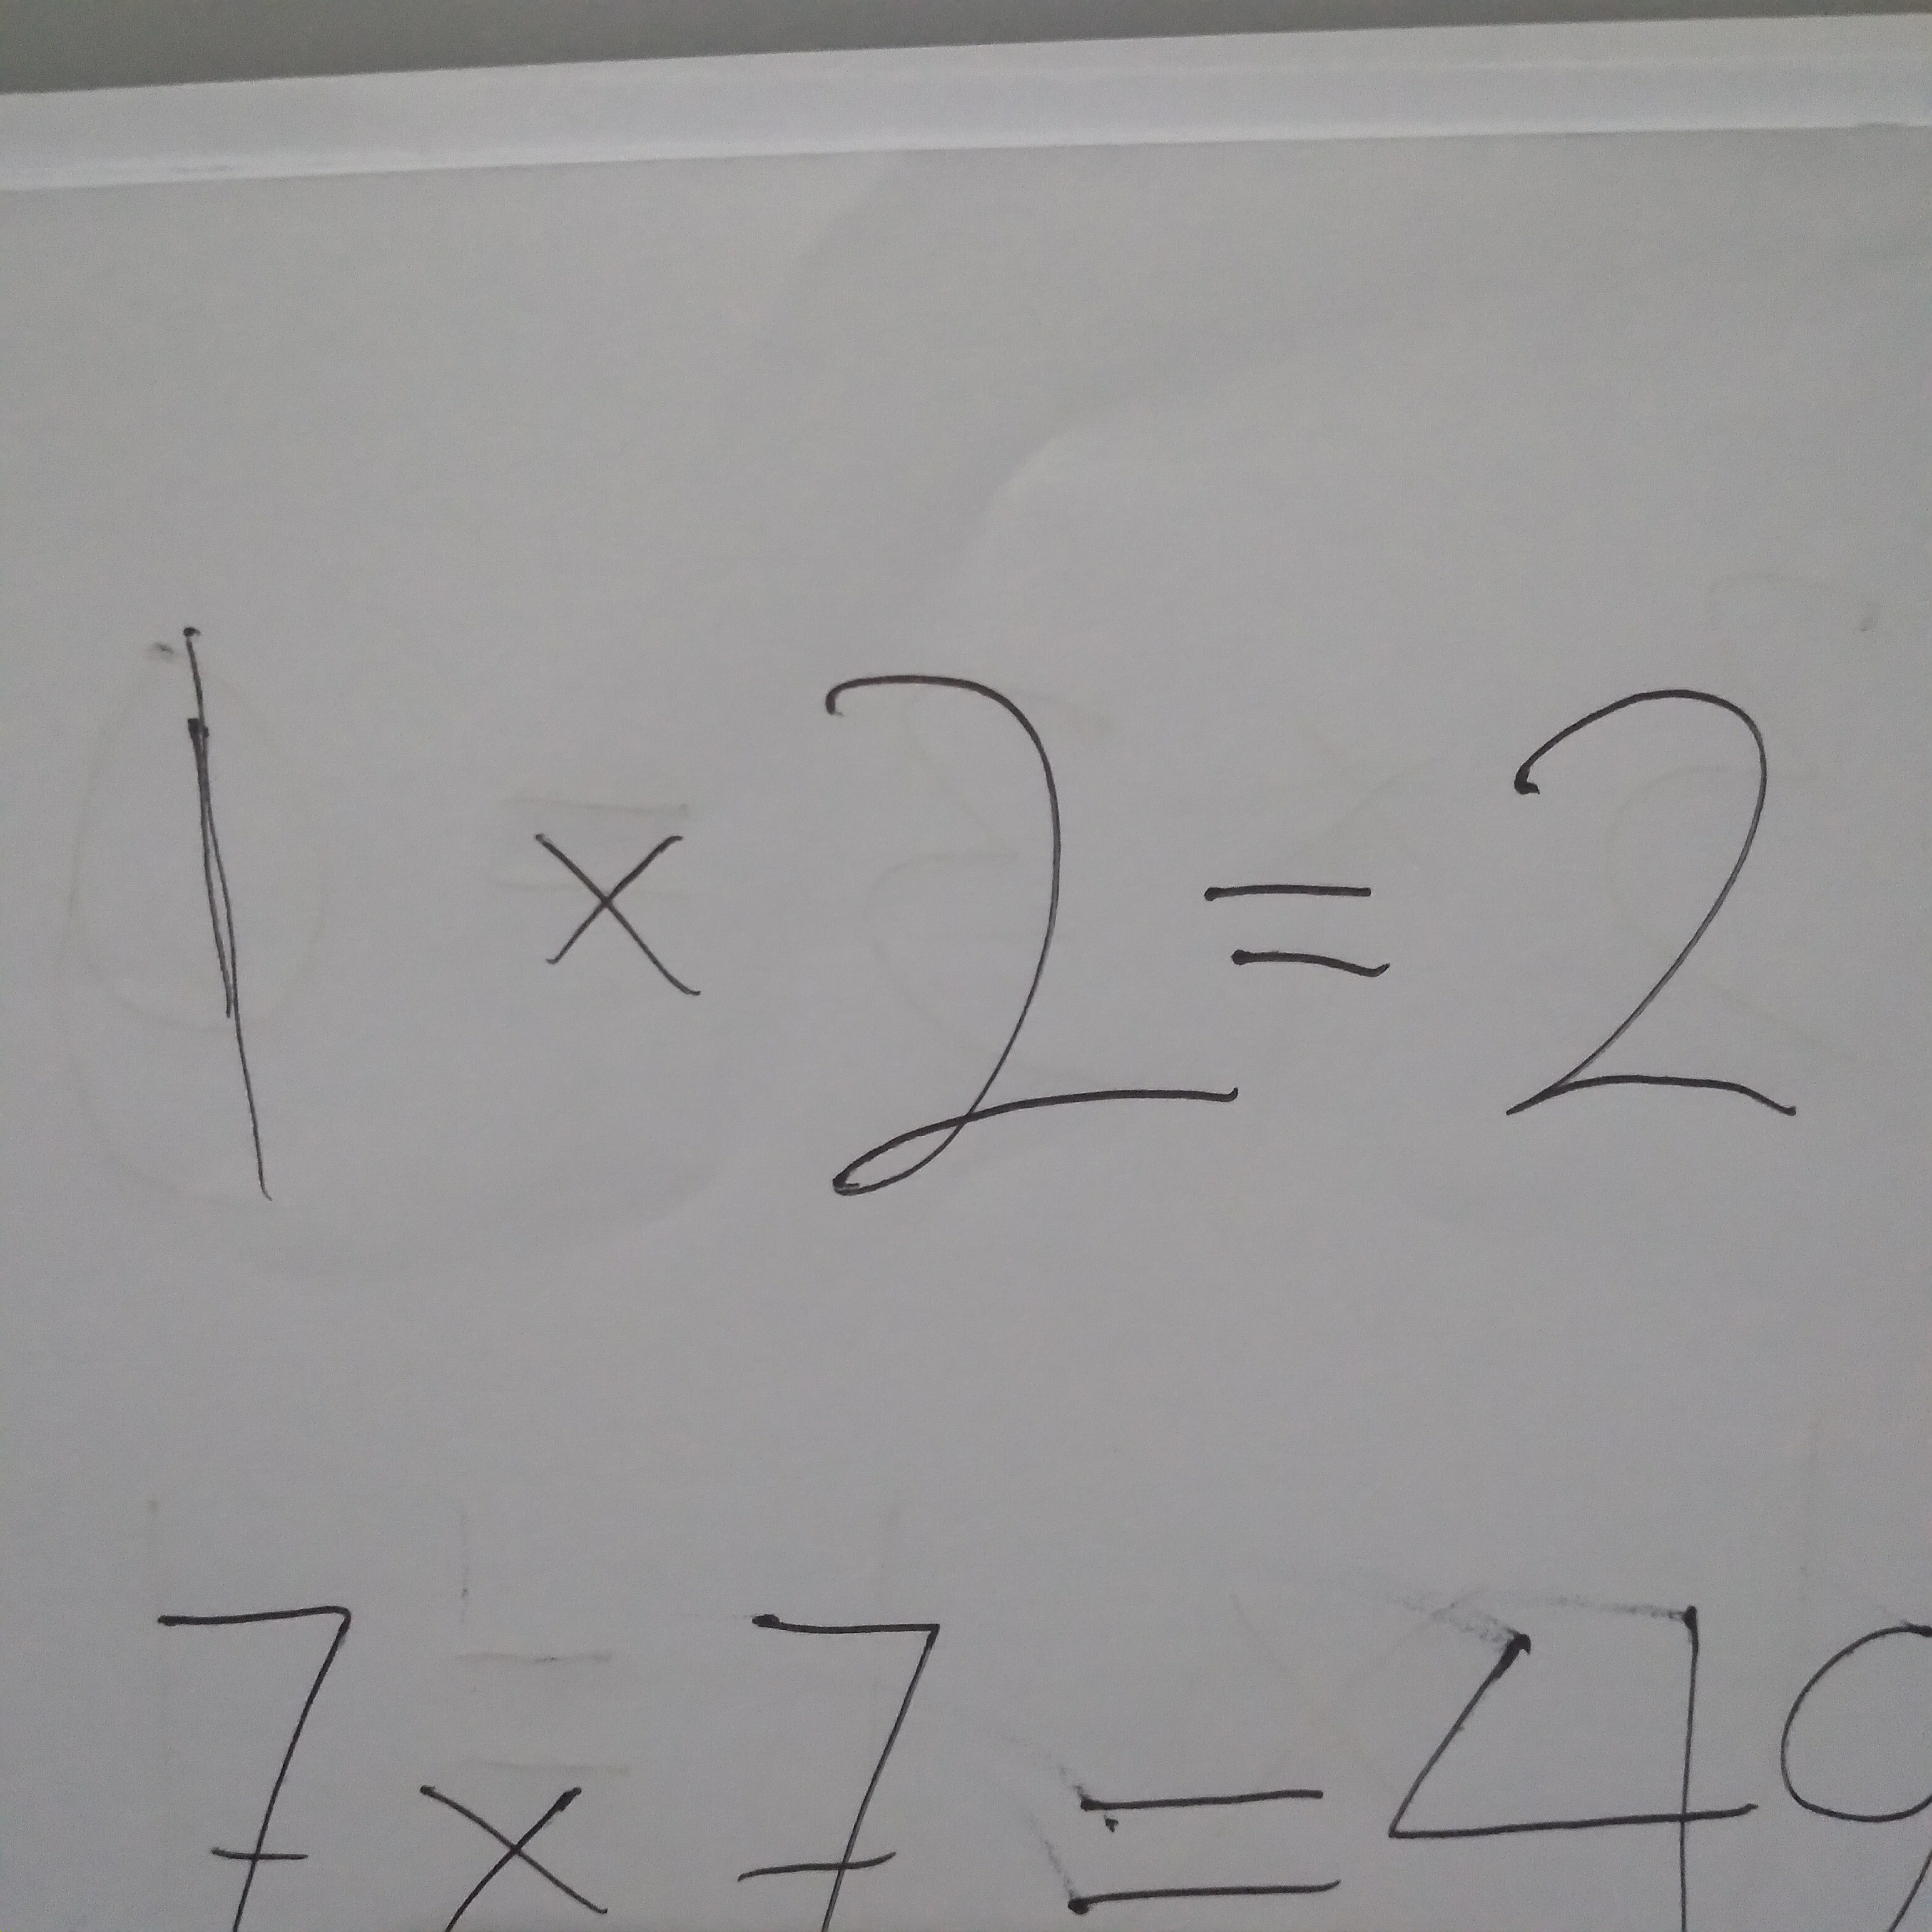 1 × 2 = 2
7 × 7 = 49